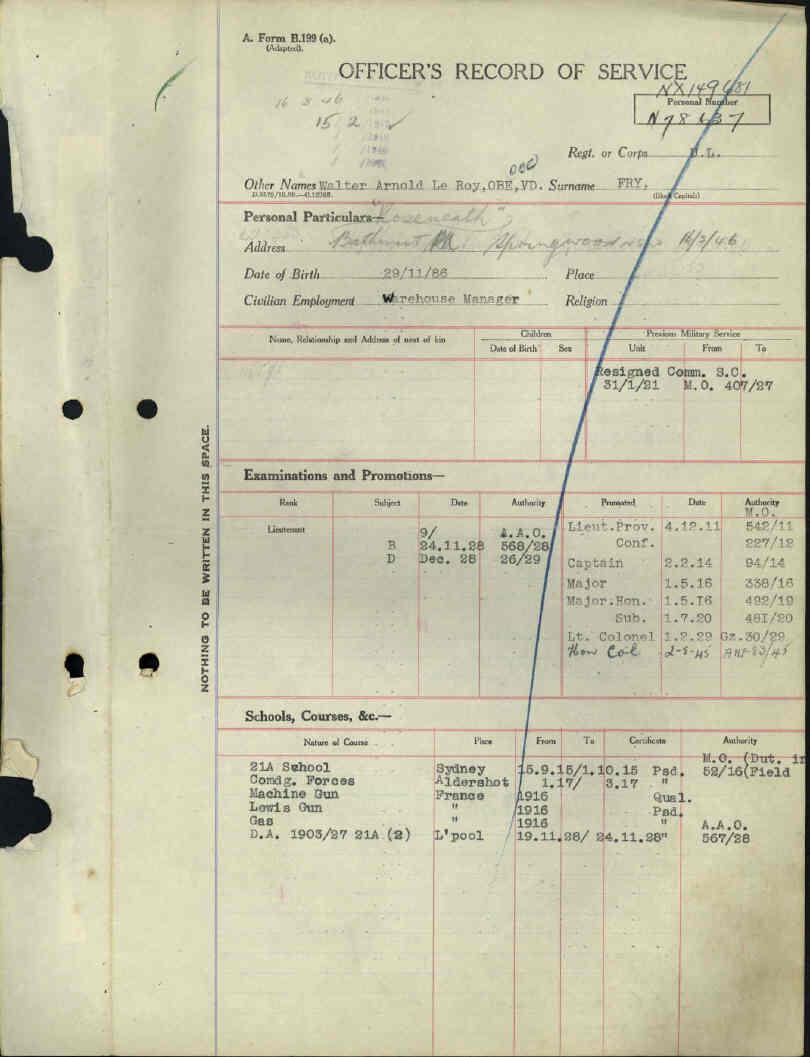 A. Form B.199 (a).
(Adapted).
OFFICER'S RECORD OF SERVICE
NX149681
Personal Number
N78637
16 8 46
15 2
Regt. or Corps
OBE
Other Names Walter Arnold Le Roy, OBE, VD. Surname FRY,
(Block Capitals)
Personal Particulars— "Roseneath"
Address Bathurst Rd Springwood NSW 16/2/46
Date of Birth 29/11/86 Place
Civilian Employment Warehouse Manager Religion
Name, Relationship and Address of next of kin Children Previous Military Service
Date of Birth Sex Unit From To
Resigned Comm. S.C.
31/1/21 M.O. 407/27
NOTHING TO BE WRITTEN IN THIS SPACE.
Examinations and Promotions—
Rank Subject Date Authority Promoted Date Authority
M.O.
Lieutenant 9/ A.A.O. Lieut.Prov. 4.12.11 542/11
B 24.11.28 568/28 Conf. 227/12
D Dec. 28 26/29 Captain 2.2.14 94/14
Major 1.5.16 338/16
Major.Hon. 1.5.16 492/19
Sub. 1.7.20 481/20
Lt. Colonel 1.2.29 Gz.30/29
Hon Col 2-8-45
Schools, Courses, &c.—
Nature of Course Place From To Certificate Authority
M.O. (Dut. in
21A School Sydney 15.9.15/1.10.15 Psd. 52/16(Field
Comdg. Forces Aldershot 1.17/ 3.17 "
Machine Gun France 1916 Qual.
Lewis Gun " 1916 Psd.
Gas " 1916 " A.A.O.
D.A. 1903/27 21A (2) L'pool 19.11.28/ 24.11.28" 567/28